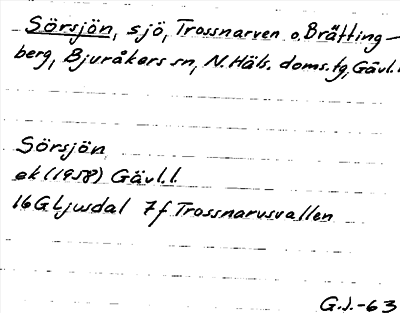 Sörsjön, sjö, Trossnarven o. Brätting-
berg, Bjuråkers sn, N. Häls. doms. tg, Gävl. l.
Sörsjön
ek (1958) Gävl. l.
16G Ljusdal 7f Trossnarvsvallen
G.J.-63